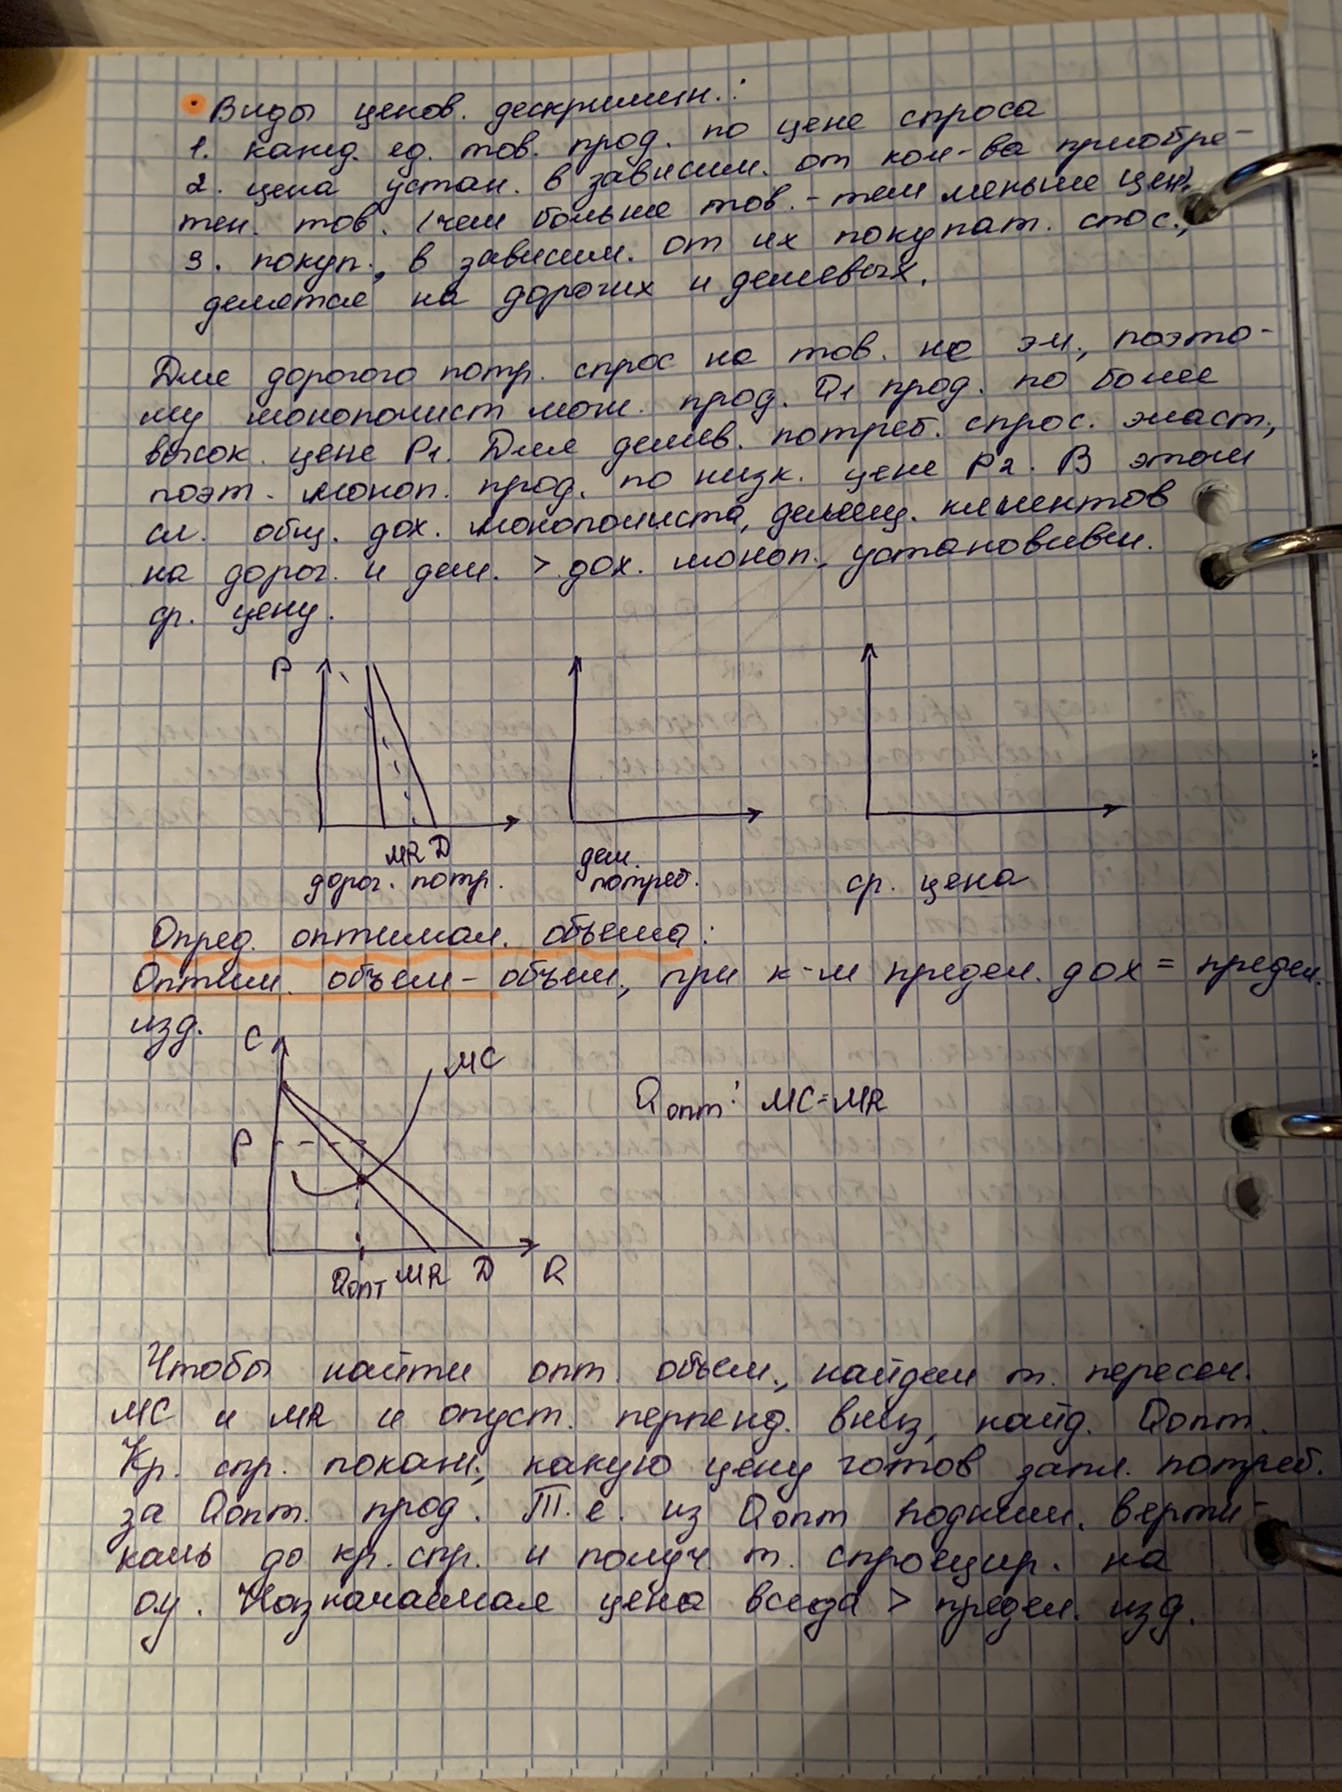 Виды ценов. дескримин.:
1. кажд. ед. тов. прод. по цене спроса
2. цена устан. в зависим. от кол-ва приобре-
тен. тов. (чем больше тов. - тем меньше цен)
3. покуп., в зависим. от их покупат. спос.,
делятся на дорогих и дешевых.
Для дорогого потр. спрос на тов. не эл., поэто-
му монополист мож. прод. Q1 прод. по более
высок. цене P1. Для дешев. потреб. спрос. эласт.,
поэт. моноп. прод. по низк. цене P2. В этом
сл. общ. дох. монополиста, делящ. клиентов
на дорог. и деш. > дох. моноп., установивш.
ср. цену.
P
MR D
дорог. потр.
деш.
потреб.
ср. цена
Опред. оптимал. объема:
Оптим. объем - объем, при к-м предел. дох = предел.
изд.
C
MC
Qопт: MC=MR
P
Qопт MR D Q
Чтобы найти опт. объем, найдем т. пересеч.
MC и MR и опуст. перпенд. вниз, найд. Qопт.
Кр. спр. покаж., какую цену готов запл. потреб.
за Qопт. прод. Т.е. из Qопт подним. верти-
каль до кр. спр. и получ т. спроецир. на
оу. Назначаемая цена всегда > предел. изд.